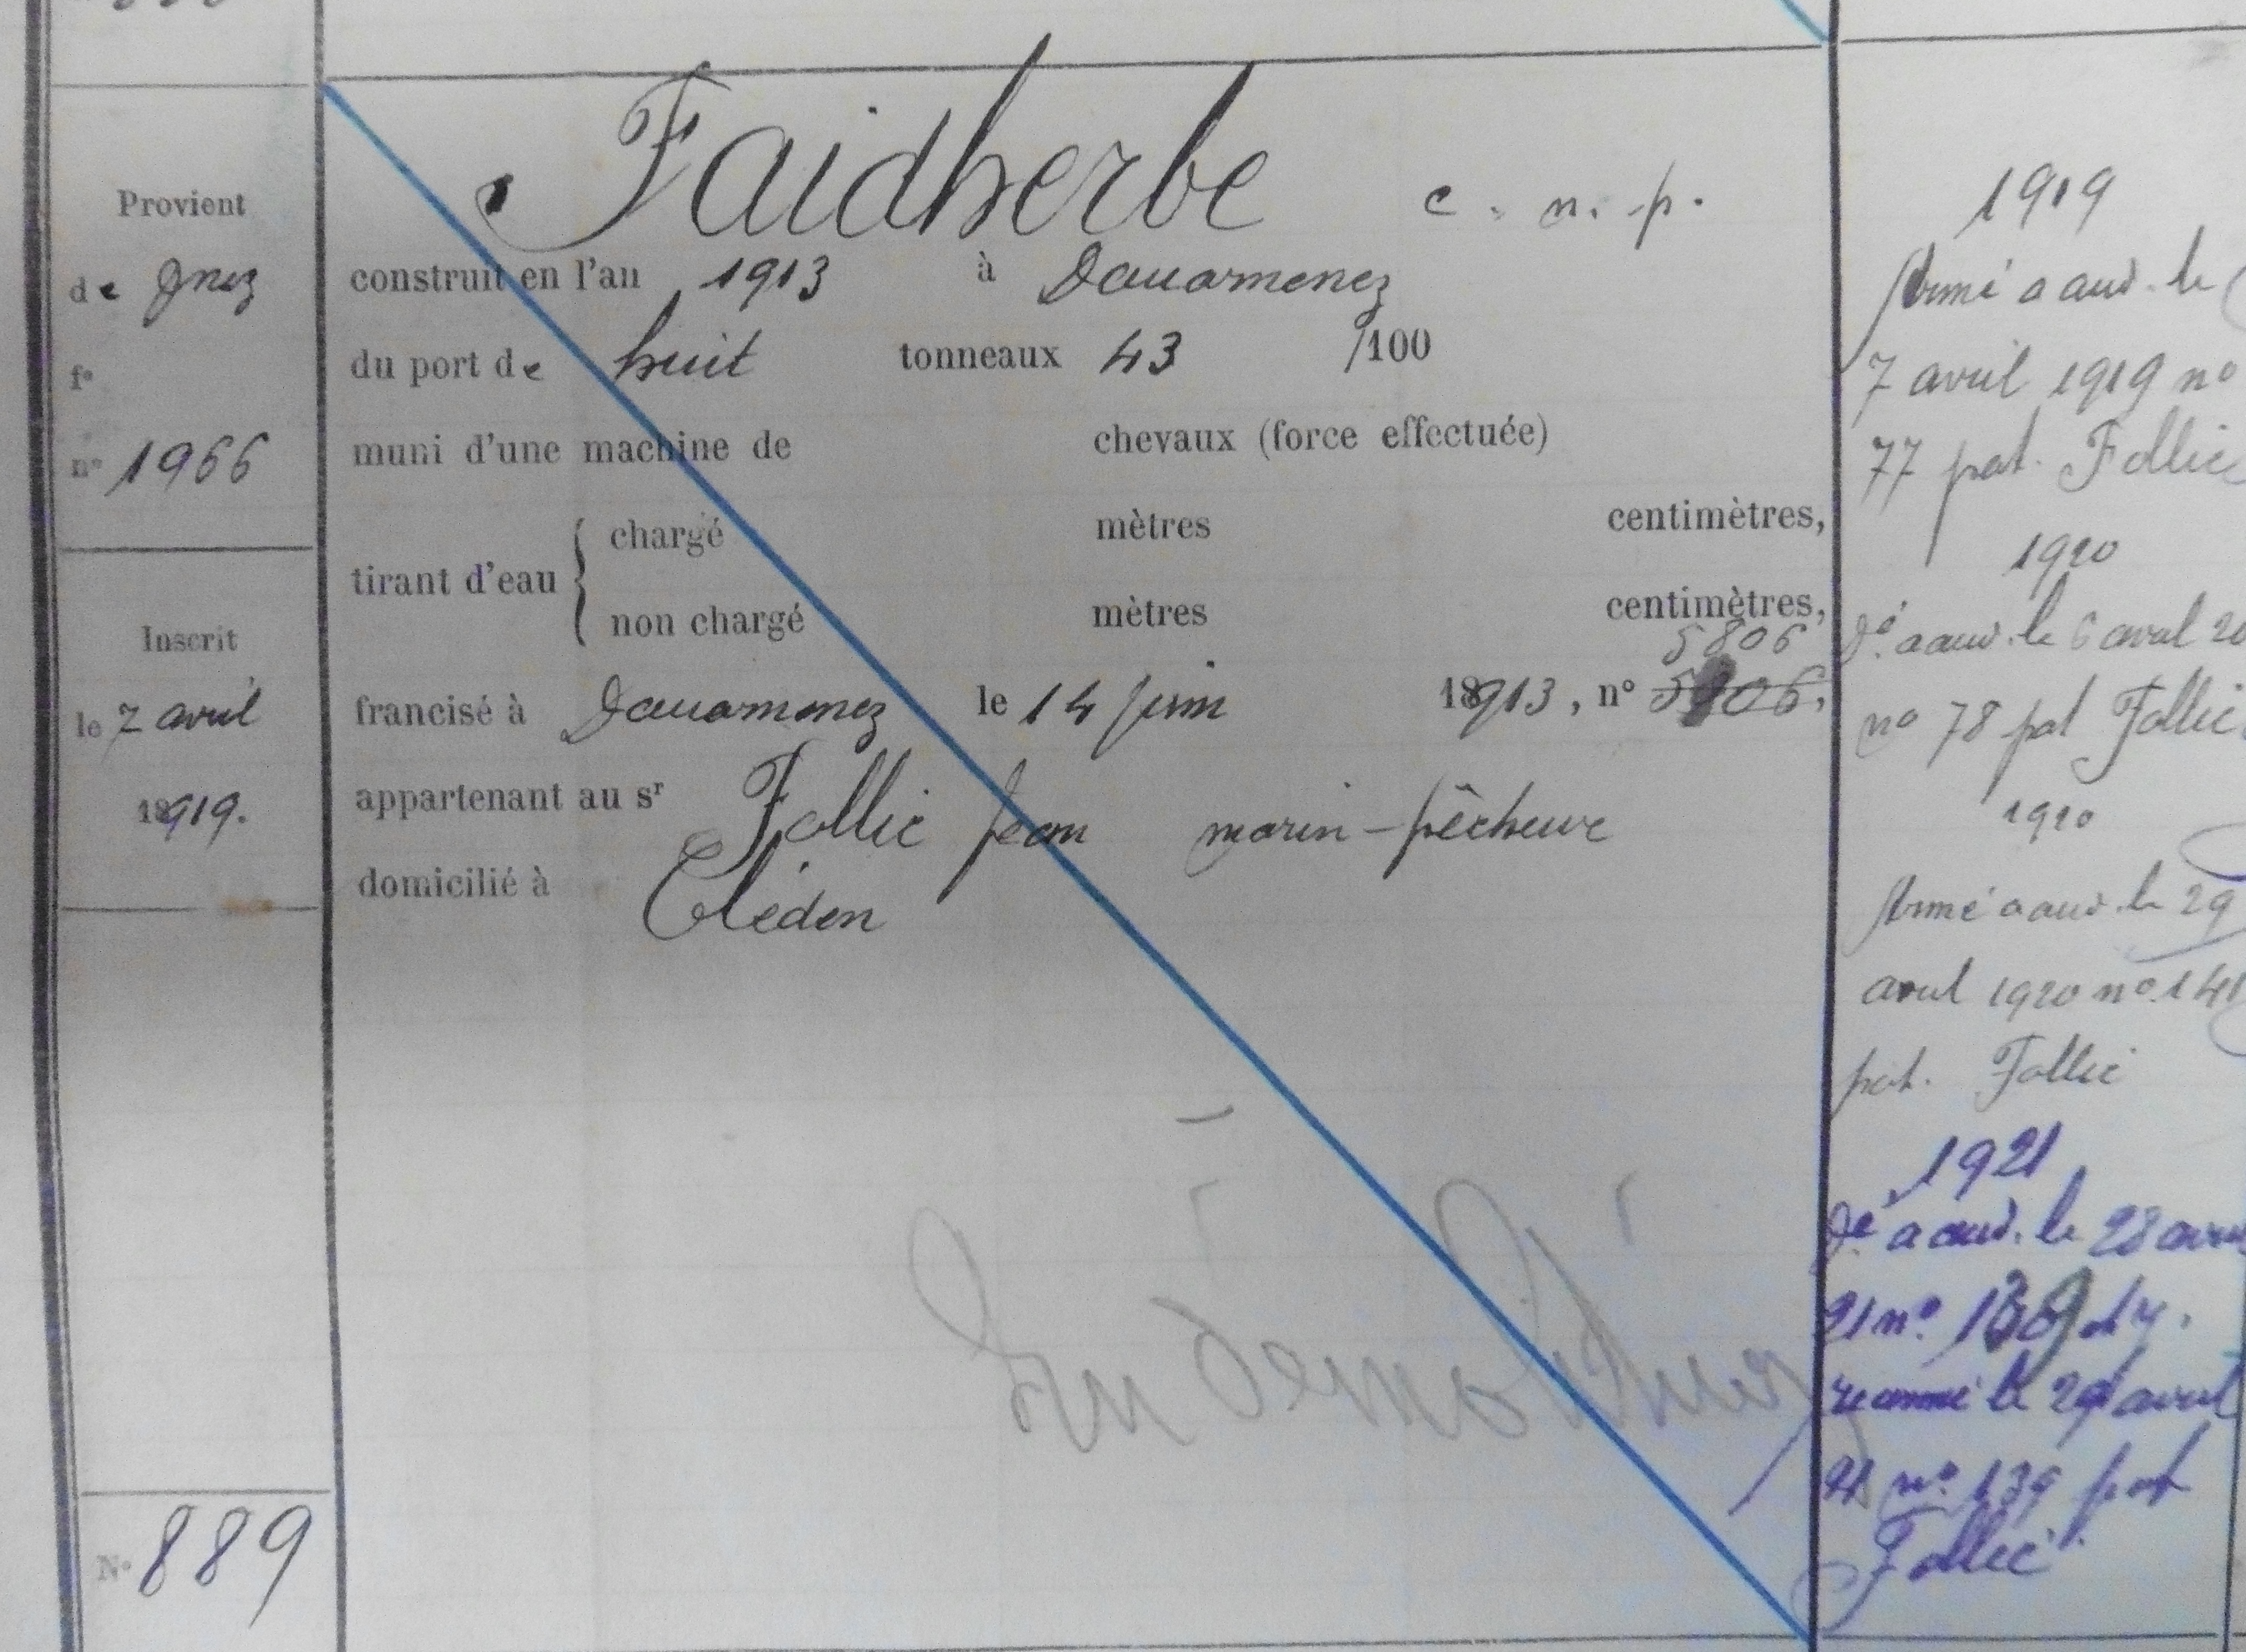 Provient
de Dnez
fo
no 1966
Inscrit
le 7 avril
18919.
No 889
Faidherbe c. n. p.
construit en l'an 1913 à Douarnenez
du port de huit tonneaux 43 /100
muni d'une machine de chevaux (force effectuée)
tirant d'eau { chargé mètres centimètres,
non chargé mètres centimètres,
5806
francisé à Douarnenez le 14 juin 18913, no 5906.
appartenant au sr Follic Jean marin-pêcheur
domicilié à Cléden
1919
Armé a aud. le
7 avril 1919 no
77 pat. Follic
1920
Dé a aud. le 6 avril 20
no 78 pat Follic
1920
Armé a aud. le 29
avril 1920 no 141
pat. Follic
1921
Dé a aud. le 28 avril
21 no 139
réarmé le 29 avril
21 no 139 pat
Follic